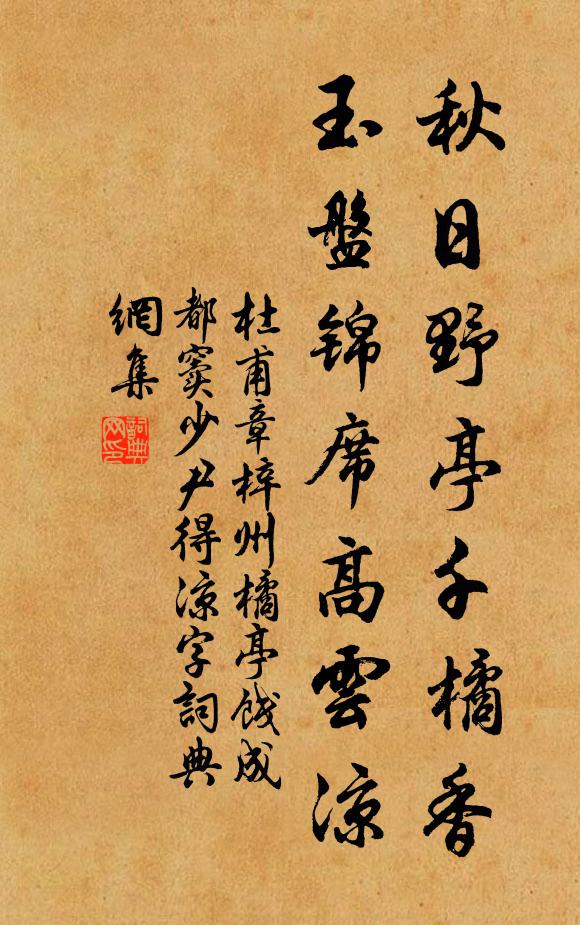 秋日野亭千橘香
玉盤錦席高雲涼
杜甫章梓州橘亭餞成
都竇少尹得涼字詞典
網集
詞典
网印